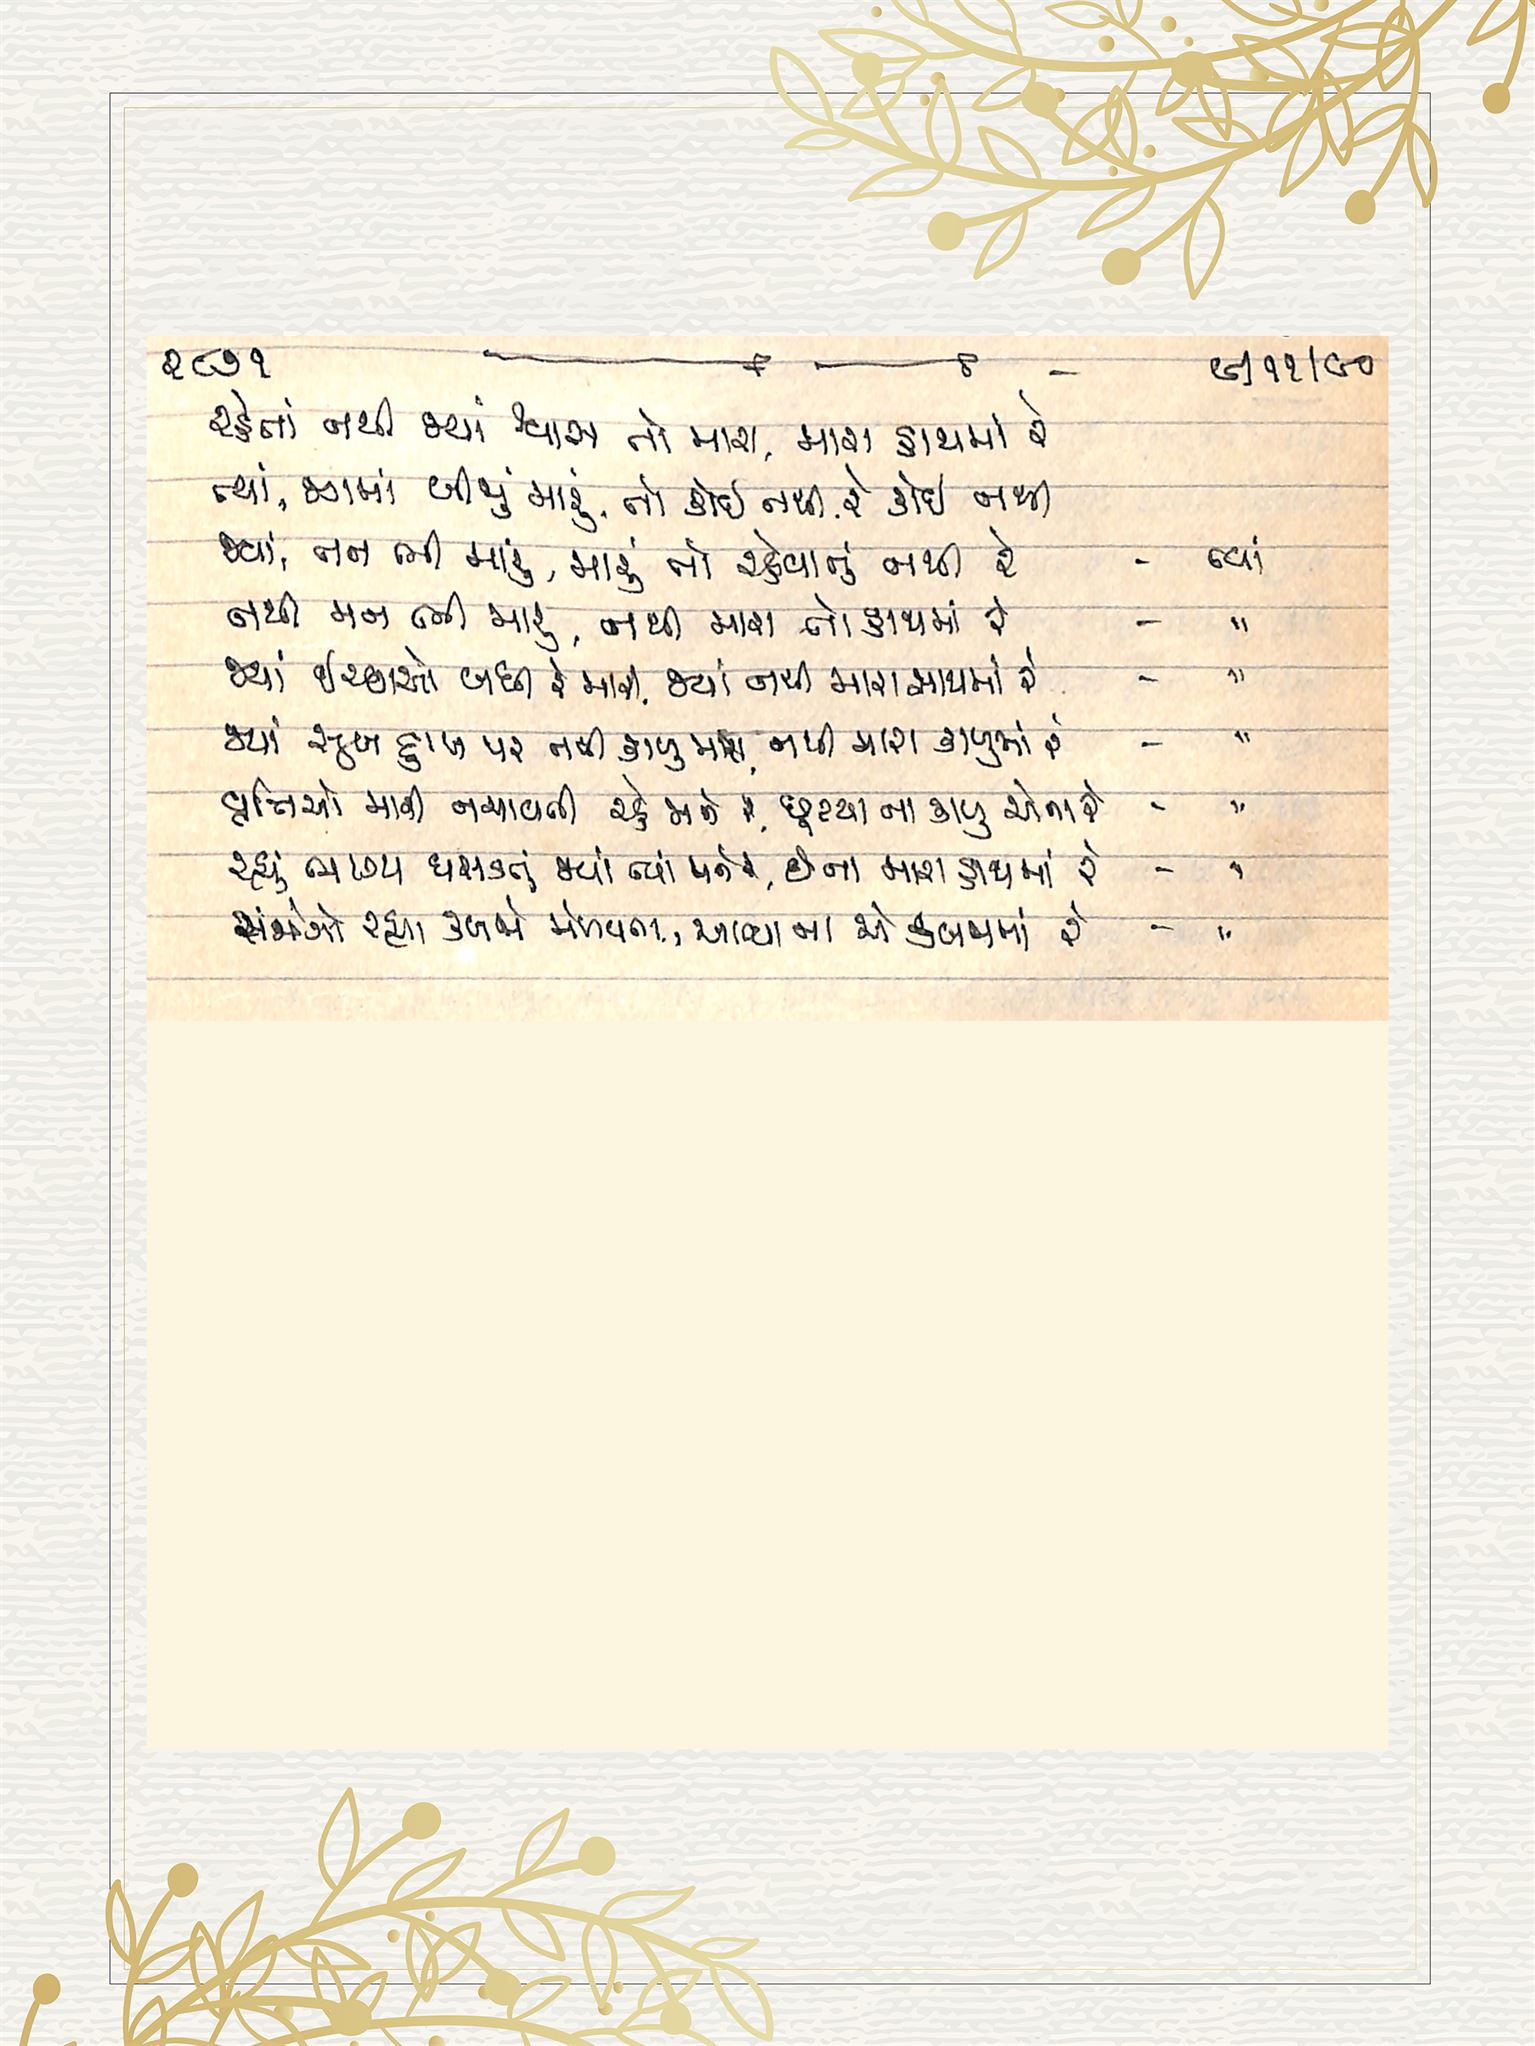 ૨૮૭૧ ૯/૧૧/૯૦
રહેતાં નથી જ્યાં શ્વાસ તો મારા, મારા હાથમાં રે
ત્યાં, જગમાં બીજું મારું, તો કોઈ નથી રે કોઈ નથી
જ્યાં, તન ભી મારું, મારું તો રહેવાનું નથી રે - ત્યાં
નથી મન ભી મારું, નથી મારા તો હાથમાં રે - "
જ્યાં ઈચ્છાઓ બધી રે મારી, જ્યાં નથી મારા હાથમાં રે - "
જ્યાં સુખ દુઃખ પર નથી કાબુ મારા, નથી મારા કાબુમાં રે - "
વૃત્તિઓ મારી નચાવતી રહે મને રે, છૂટયા ના કાબુ એના રે - "
રહ્યું ભાગ્ય ઘસડતું જ્યાં ત્યાં મને રે, છે ના મારા હાથમાં રે - "
સંજોગો રહ્યા કબજો મેળવતા, આવ્યા ના એ કબજામાં રે - "